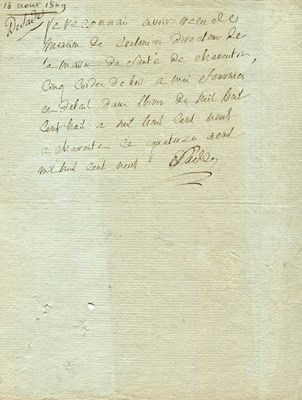 14 aout 1809
De Sade
je reconnais avoir recu de
monsieur de Coulmier directeur de
la maison de santé de charenton
cinq cordes de bois a moi fournies
en detail dans l'hiver de mil huit
cent huit a mil huit cent neuf
a charenton ce quatorze aout
mil huit cent neuf